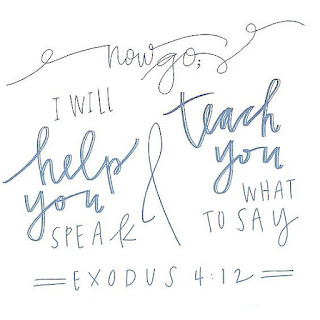 now go;
I WILL
help
you
SPEAK
&
teach
you
WHAT
TO SAY
EXODUS 4:12